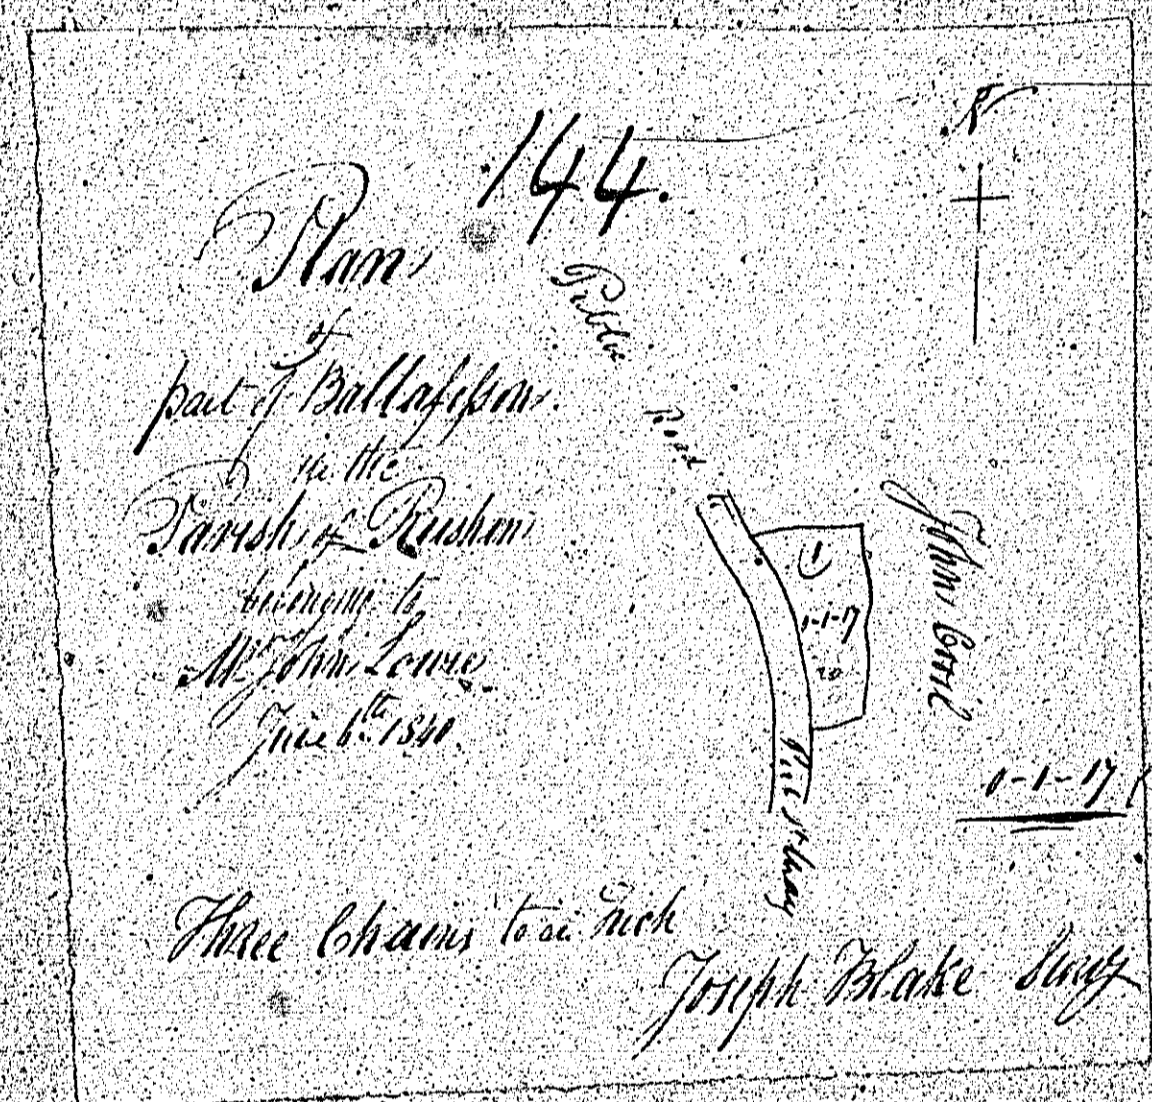 144.
Plan
of
part of Ballafesson.
in the
Parish of Rushen
belonging to
Mr John Lowie
June 6th 1840
Public
Road
1
0-1-17
John Corril
0-1-17
Three Chains to an Inch
Joseph Blake Survy